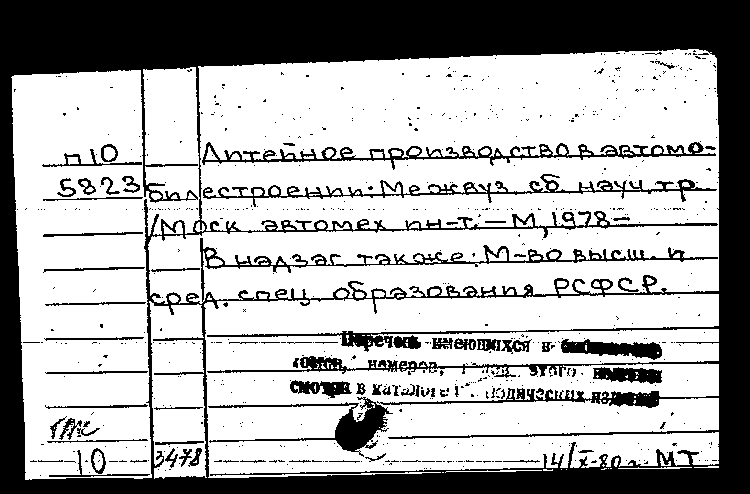 п10 Литейное производство в автомо-
5823 билестроении: Межвуз. сб. науч. тр.
/Моск. автомех. ин-т. – М., 1978 –
В надзаг. также: М-во высш. и
сред. спец. образования РСФСР.
Перечень имеющихся в
томов, номеров, этого
смотри в каталоге
10 3478 14/X-80 г. МТ